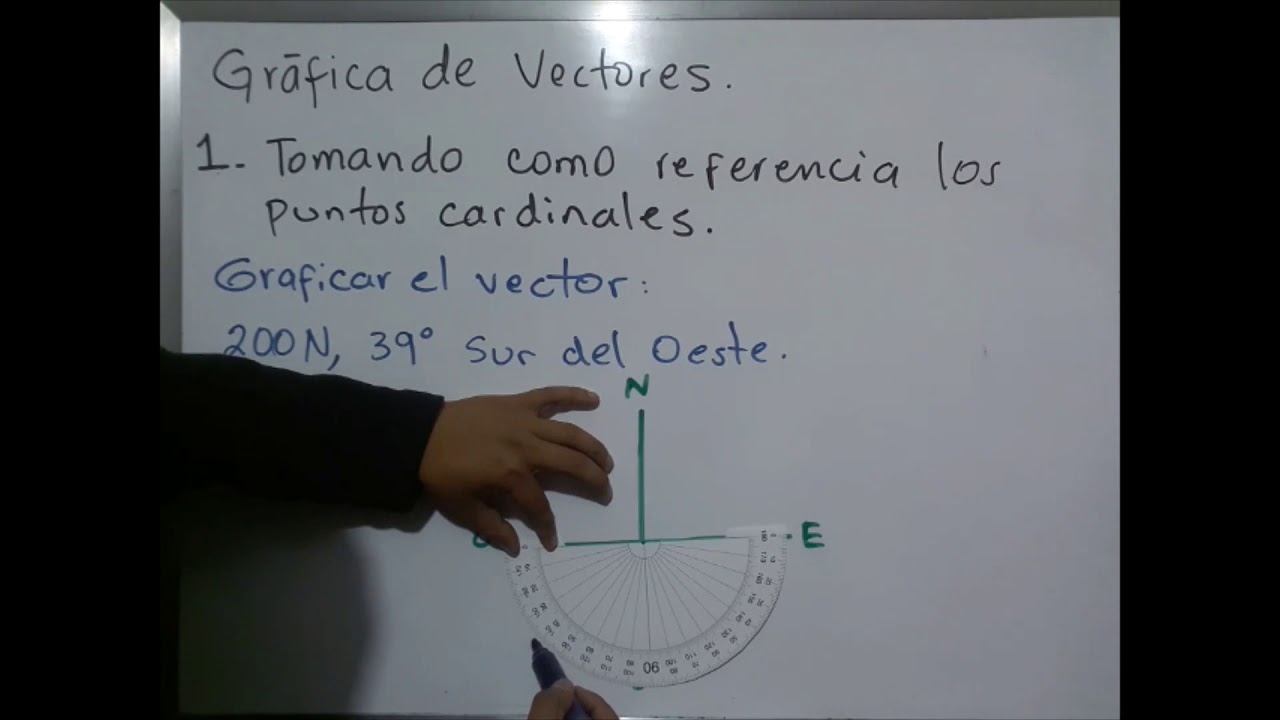 Gráfica de Vectores.
1. Tomando como referencia los
puntos cardinales.
Graficar el vector:
200N, 39° Sur del Oeste.
N
E
90